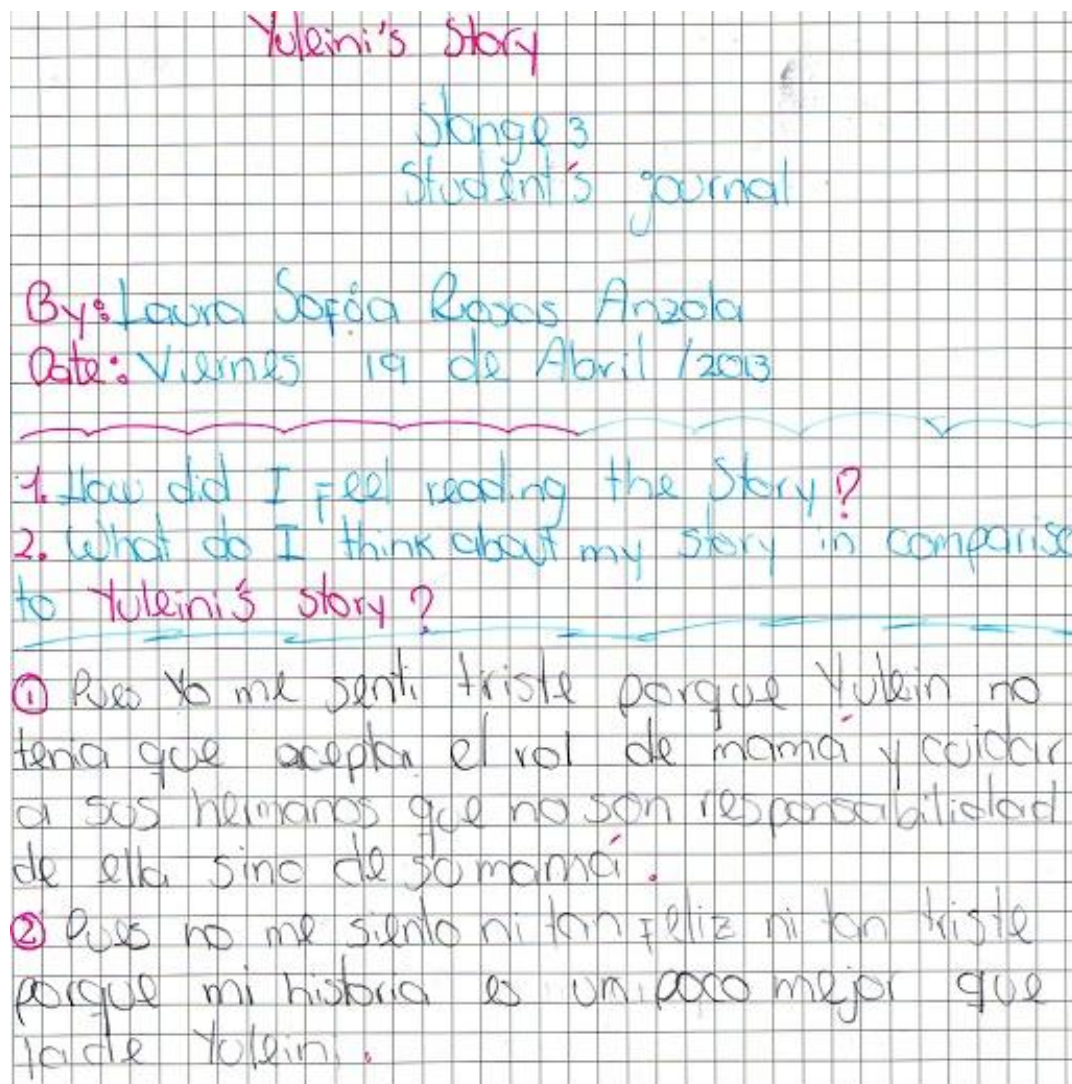 Yuleini's Story
Stange 3
Student's journal
By: Laura Sofía Rosas Anzola
Date: Viernes 19 de Abril /2013
1. How did I Feel reading the Story?
2. What do I think about my story in comparise
to Yuleini's story?
① Pues Yo me senti triste porque Yulein no
tenia que aceptar el rol de mamá y cuidar
a sus hermanos que no son responsabilidad
de ella sino de su mamá.
② Pues no me siento ni tan Feliz ni tan triste
porque mi historia es un poco mejor que
la de Yuleini.